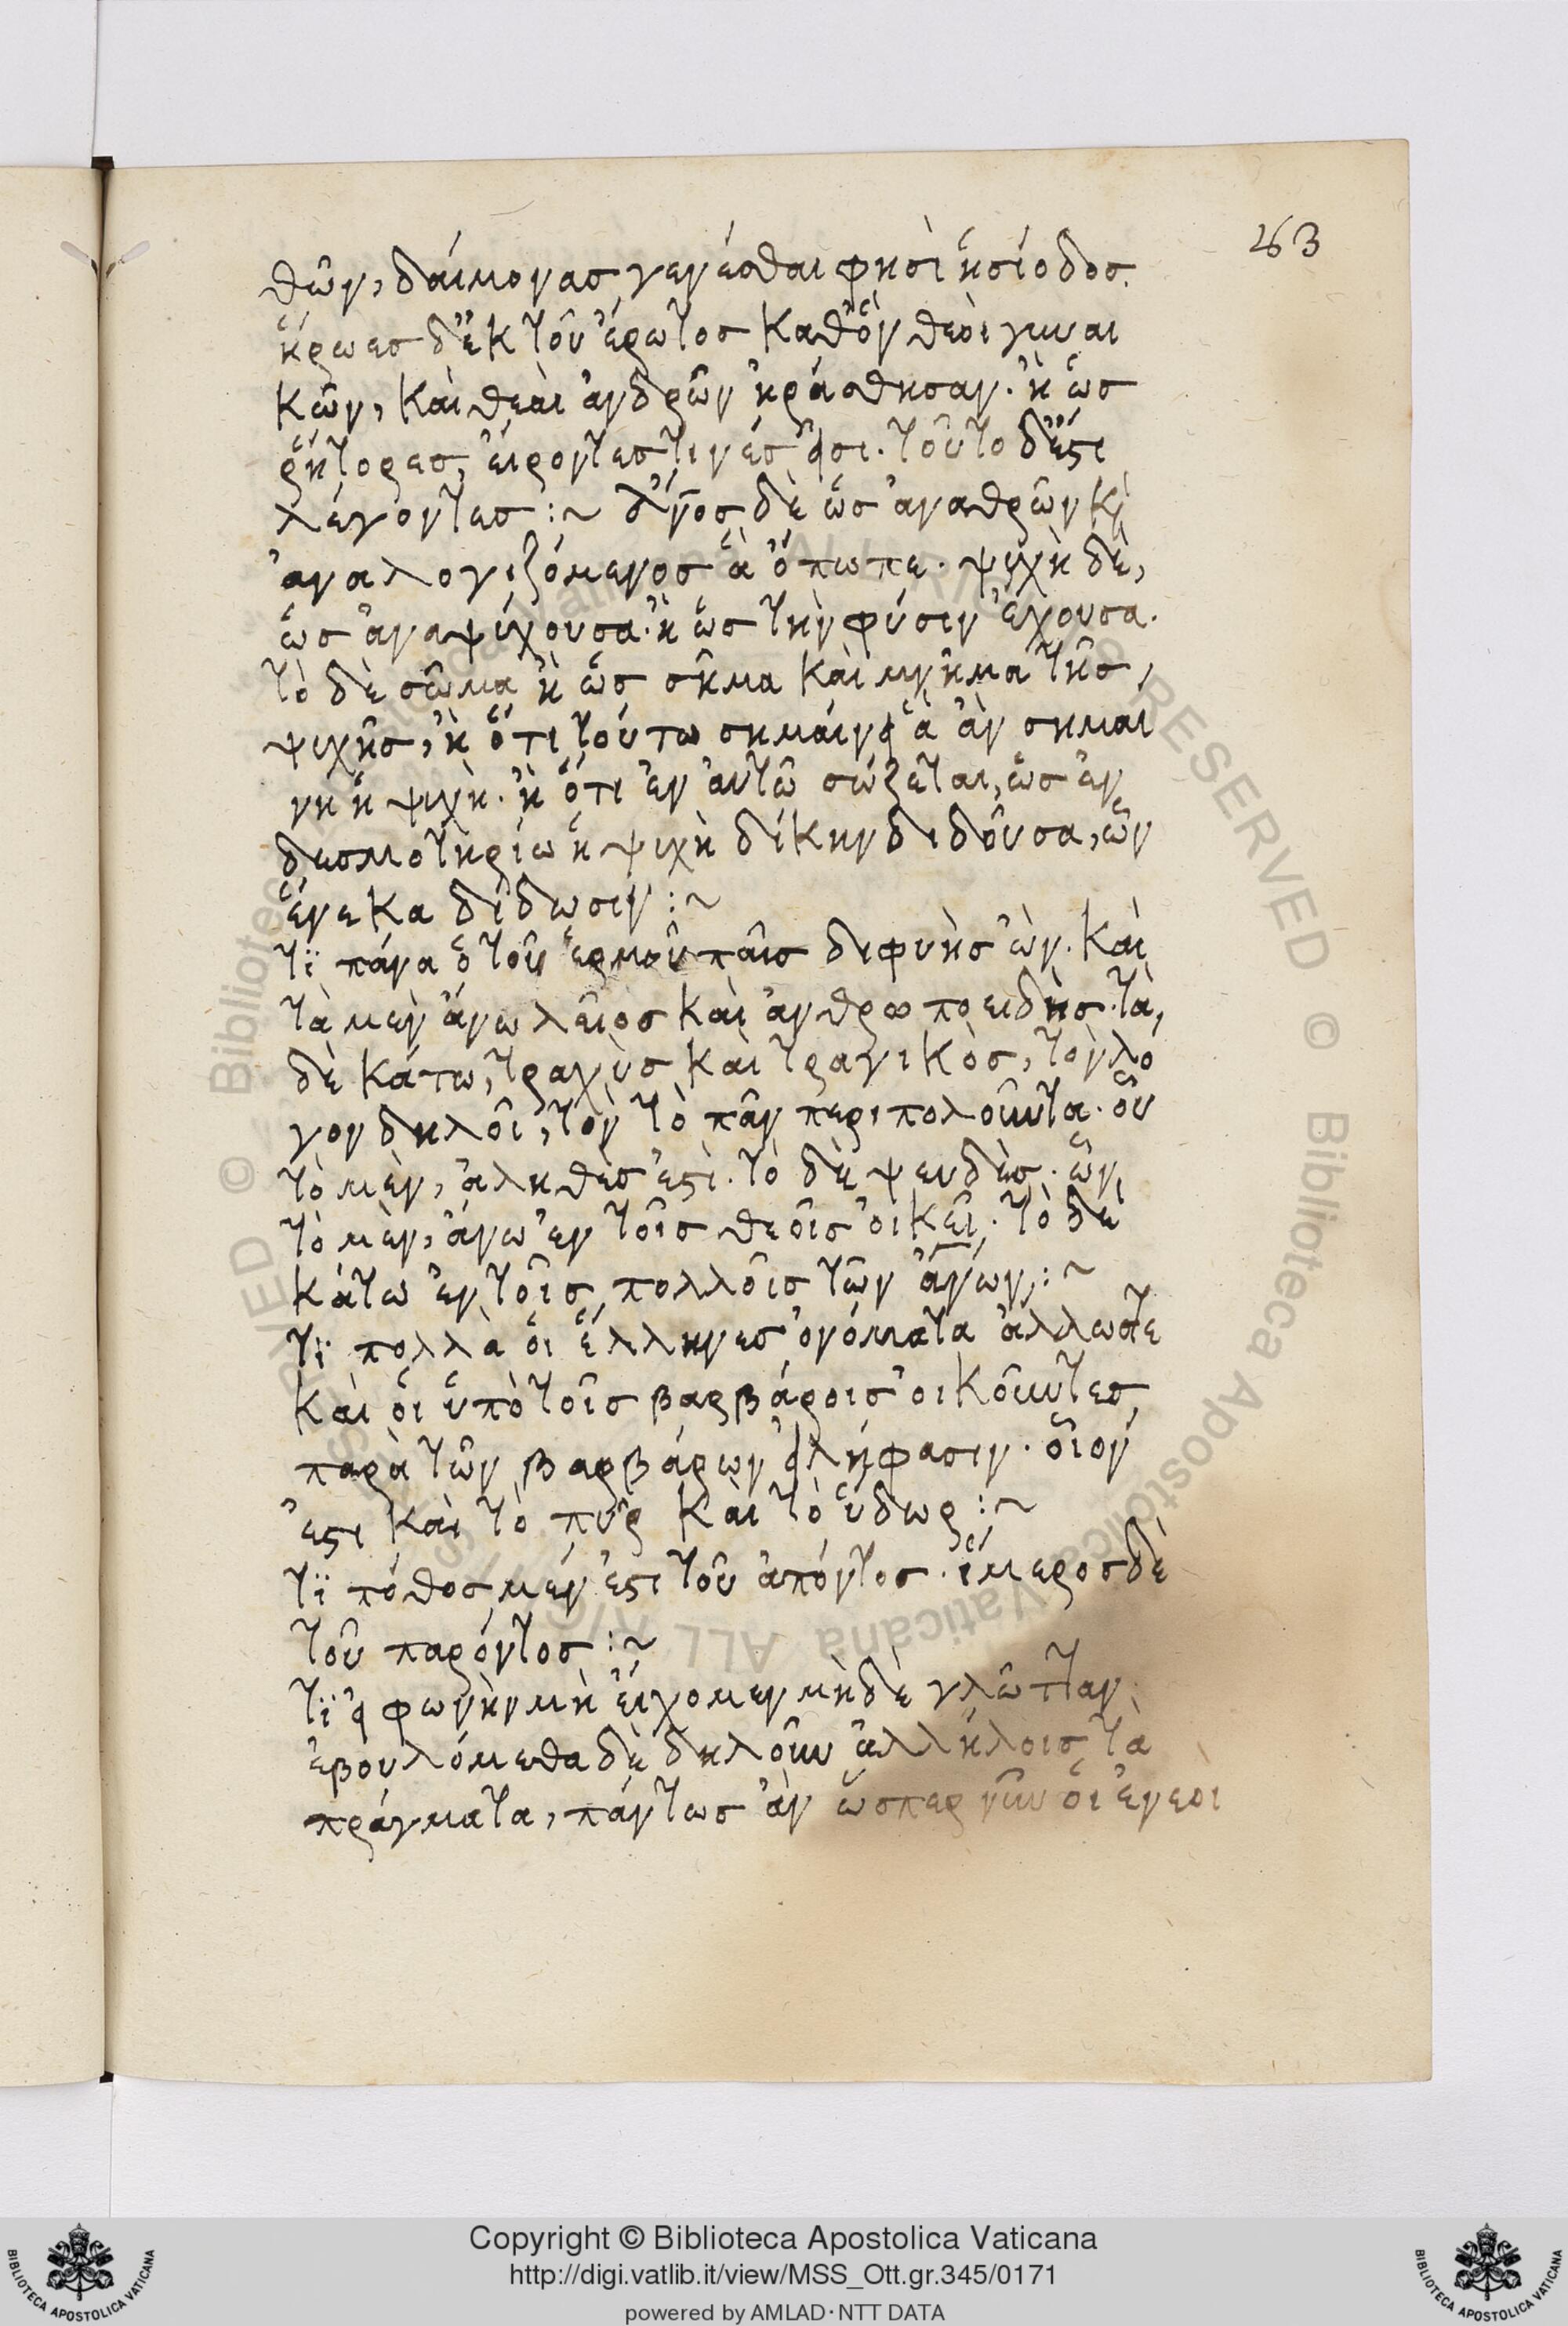 263
θῶν, δαίμονας γενέσθαι φησὶ ἡσίοδος.
ἥρωες δ' ἐκ τοῦ ἔρωτος καθ' ὃν θεοὶ γυναι
κῶν, καὶ θεαὶ ἀνδρῶν ἠράσθησαν. ἢ ὡς
ῥήτορες, εἴροντές τινές εἰσι. τοῦτο δ' ἔστι
λέγοντες :~ ἄν̅ος δὲ ὡς ἀναθρῶν κὶ
ἀναλογιζόμενος ἃ ὄπωπε. ψυχὴ δὲ,
ὡς ἀναψύχουσα. ἢ ὡς τὴν φύσιν ἔχουσα.
τὸ δὲ σῶμα ἢ ὡς σῆμα καὶ μνῆμα τῆς,
ψυχῆς, ἢ ὅτι τούτω σημαίνει ἃ ἂν σημαι
νη ἡ ψυχή. ἢ ὅτι ἐν αὐτῶ σώζεται, ὡς ἐν
δεσμοτηρίω ἡ ψυχὴ δίκην διδοῦσα, ὧν
ἕνεκα δίδωσιν :~
τϊ πάνα ὁ τοῦ ἑρμοῦ παῖς διφυὴς ὢν. καὶ
τὰ μὲν ἄνω λεῖος καὶ ἀνθρωποειδὴς. τὰ,
δὲ κάτω, τραχὺς καὶ τραγικὸς, τὸν λό
γον δηλοῖ, τὸν τὸ πᾶν περιπολοῦντα. οὗ
τὸ μὲν, ἀληθὲς ἐστὶ. τὸ δὲ ψευδὲς. ὧν,
τὸ μὲν, ἄνω ἐν τοῖς θεοῖς οἰκεῖ. τὸ δὲ
κάτω ἐν τοῖς πολλοῖς τῶν ἄν̅ων :~
τϊ πολλὰ οἱ ἕλληνες ὀνόματα ἄλλωστε
καὶ οἱ ὑπὸ τοῖς βαρβάροις οἰκοῦντες
παρὰ τῶν βαρβάρων εἰλήφασιν. οἷον
ἐστι καὶ τὸ πῦρ καὶ τὸ ὕδωρ :~
τϊ πόθος μέν ἐστι τοῦ ἀπόντος. ἵμερος δὲ
τοῦ παρόντος :~
τϊ εἰ φωνὴν μὴ εἴχομεν μὴδὲ γλῶτταν.
ἐβουλόμεθα δὲ δηλοῦν ἀλλήλοις τὰ
πράγματα, πάντως ἂν ὥσπερ νῦν οἱ ἐνεοὶ
© Biblioteca Apostolica Vaticana ALL RIGHTS RESERVED
Copyright © Biblioteca Apostolica Vaticana
http://digi.vatlib.it/view/MSS_Ott.gr.345/0171
powered by AMLAD·NTT DATA
BIBLIOTECA APOSTOLICA VATICANA
BIBLIOTECA APOSTOLICA VATICANA